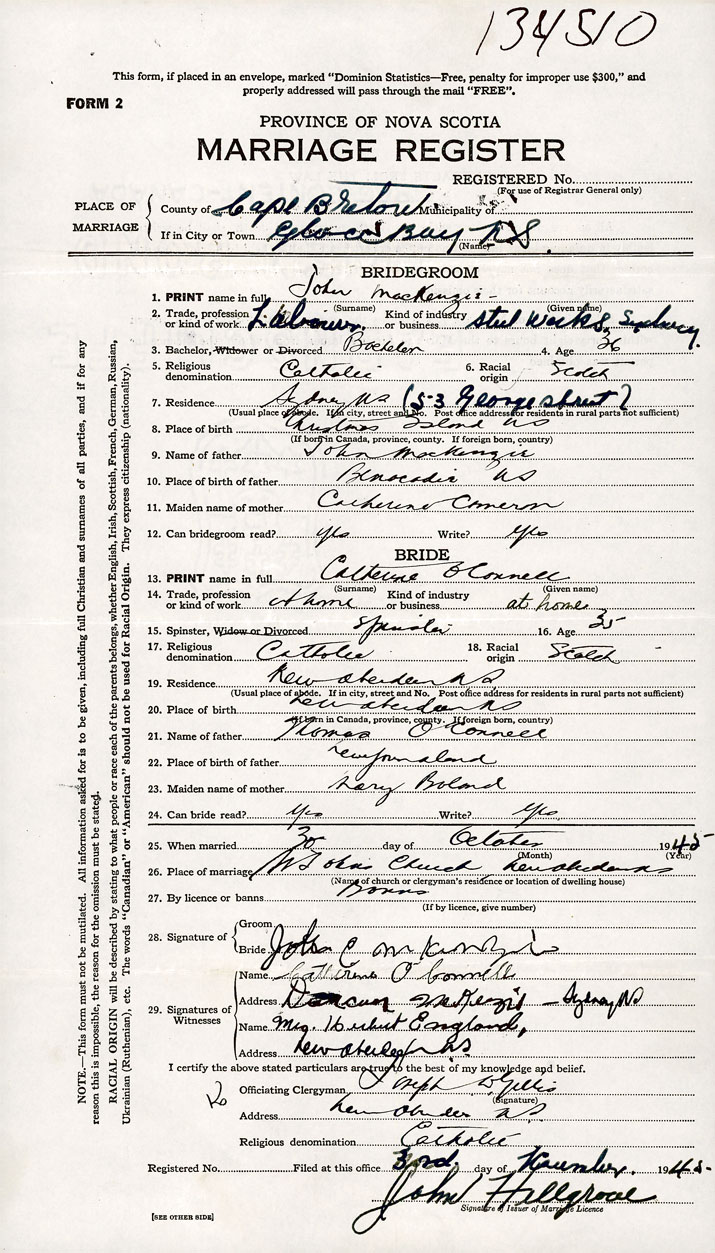 134510
This form, if placed in an envelope, marked "Dominion Statistics—Free, penalty for improper use $300," and
properly addressed will pass through the mail "FREE".
FORM 2
PROVINCE OF NOVA SCOTIA
MARRIAGE REGISTER
REGISTERED No.
(For use of Registrar General only)
PLACE OF MARRIAGE
County of Cape Breton Municipality of
If in City or Town Glace Bay N.S.
(Name)
BRIDEGROOM
1. PRINT name in full John MacKenzie
(Surname) (Given name)
2. Trade, profession or kind of work Labourer. Kind of industry or business Steel Works, Sydney.
3. Bachelor, Widower or Divorced Bachelor 4. Age 26
5. Religious denomination Catholic 6. Racial origin Scotch
7. Residence Sydney NS (53 George Street)
(Usual place of abode. If in city, street and No. Post office address for residents in rural parts not sufficient)
8. Place of birth Christmas Island NS
(If born in Canada, province, county. If foreign born, country)
9. Name of father John MacKenzie
10. Place of birth of father Benacadie NS
11. Maiden name of mother Catherine Cameron
12. Can bridegroom read? yes Write? yes
BRIDE
13. PRINT name in full Catherine O'Connell
(Surname) (Given name)
14. Trade, profession or kind of work at home Kind of industry or business at home
15. Spinster, Widow or Divorced Spinster 16. Age 35
17. Religious denomination Catholic 18. Racial origin Scotch
19. Residence New Aberdeen NS
(Usual place of abode. If in city, street and No. Post office address for residents in rural parts not sufficient)
20. Place of birth New Aberdeen NS
(If born in Canada, province, county. If foreign born, country)
21. Name of father Thomas O'Connell
22. Place of birth of father Newfoundland
23. Maiden name of mother Mary Boland
24. Can bride read? yes Write? yes
25. When married 30 day of October 1945
(Month) (Year)
26. Place of marriage St Johns Church New Aberdeen NS
(Name of church or clergyman's residence or location of dwelling house)
27. By licence or banns Banns
(If by licence, give number)
28. Signature of
Groom
Bride John C
Name Catherine O'Connell
29. Signatures of Witnesses
Address Duncan McKenzie - Sydney NS
Name Mrs. Hubert England,
Address New Aberdeen NS
I certify the above stated particulars are true to the best of my knowledge and belief.
Officiating Clergyman Joseph D Gillis
(Signature)
Address New Aberdeen NS
Religious denomination Catholic
Registered No. Filed at this office 3rd day of November. 1945
John Hillgrove
Signature of Issuer of Marriage Licence
[SEE OTHER SIDE]
NOTE.—This form must not be mutilated. All information asked for is to be given, including full Christian and surnames of all parties, and if for any
reason this is impossible, the reason for the omission must be stated.
RACIAL ORIGIN will be described by stating to what people or race each of the parents belongs, whether English, Irish, Scottish, French, German, Russian,
Ukrainian (Ruthenian), etc. The words "Canadian" or "American" should not be used for Racial Origin. They express citizenship (nationality).